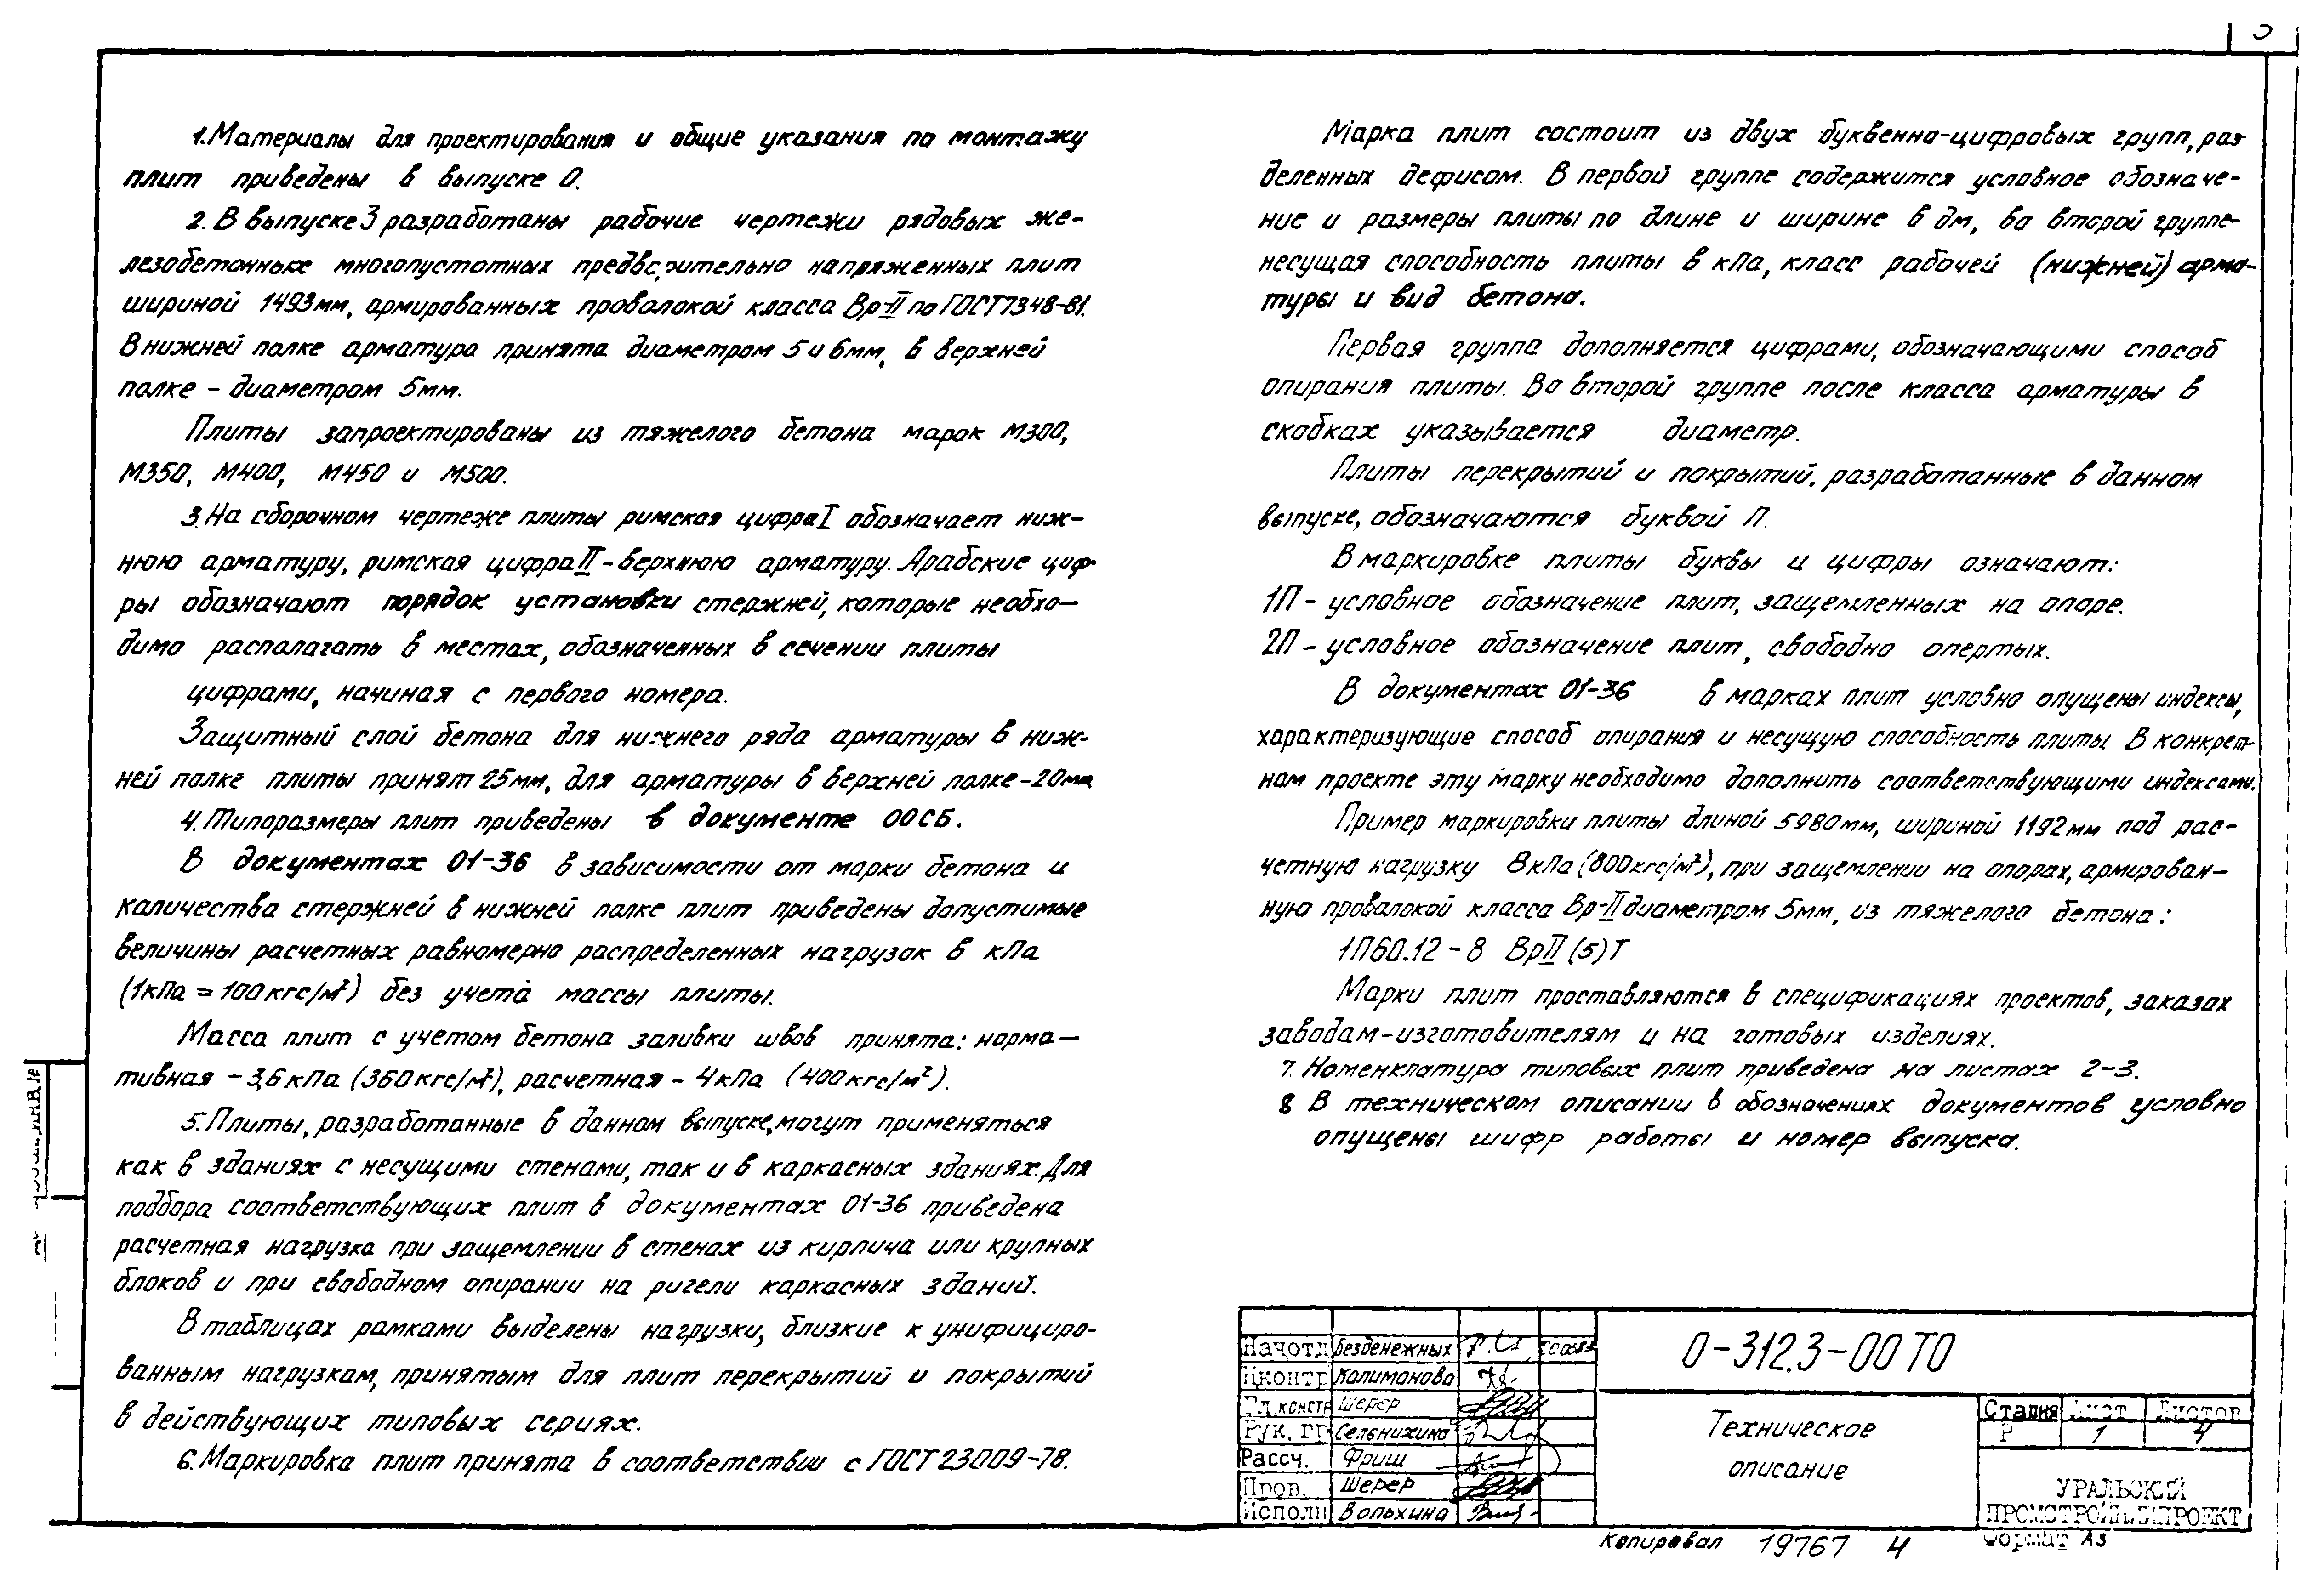 1. Материалы для проектирования и общие указания по монтажу
плит приведены в выпуске 0.
2. В выпуске 3 разработаны рабочие чертежи рядовых же-
лезобетонных многопустотных предварительно напряженных плит
шириной 1493мм, армированных проволокой класса Вр-II по ГОСТ7348-81.
В нижней полке арматура принята диаметром 5 и 6мм, в верхней
полке - диаметром 5мм.
Плиты запроектированы из тяжелого бетона марок М300,
М350, М400, М450 и М500.
3. На сборочном чертеже плиты римская цифра I обозначает ниж-
нюю арматуру, римская цифра II - верхнюю арматуру. Арабские циф-
ры обозначают порядок установки стержней, которые необхо-
димо располагать в местах, обозначенных в сечении плиты
цифрами, начиная с первого номера.
Защитный слой бетона для нижнего ряда арматуры в ниж-
ней полке плиты принят 25мм, для арматуры в верхней полке-20мм
4. Типоразмеры плит приведены в документе 00СБ.
В документах 01-36 в зависимости от марки бетона и
количества стержней в нижней полке плит приведены допустимые
величины расчетных равномерно распределенных нагрузок в кПа
(1кПа = 100кгс/м²) без учета массы плиты.
Масса плит с учетом бетона заливки швов принята: норма-
тивная - 3,6кПа (360кгс/м²), расчетная - 4кПа (400кгс/м²).
5. Плиты, разработанные в данном выпуске, могут применяться
как в зданиях с несущими стенами, так и в каркасных зданиях. Для
подбора соответствующих плит в документах 01-36 приведена
расчетная нагрузка при защемлении в стенах из кирпича или крупных
блоков и при свободном опирании на ригели каркасных зданий.
В таблицах рамками выделены нагрузки, близкие к унифициро-
ванным нагрузкам, принятым для плит перекрытий и покрытий
в действующих типовых сериях.
6. Маркировка плит принята в соответствии с ГОСТ 23009-78.
Марка плит состоит из двух буквенно-цифровых групп, раз
деленных дефисом. В первой группе содержится условное обозначе-
ние и размеры плиты по длине и ширине в дм, во второй группе-
несущая способность плиты в кПа, класс рабочей (нижней) арма-
туры и вид бетона.
Первая группа дополняется цифрами, обозначающими способ
опирания плиты. Во второй группе после класса арматуры в
скобках указывается диаметр.
Плиты перекрытий и покрытий, разработанные в данном
выпуске, обозначаются буквой П.
В маркировке плиты буквы и цифры означают:
1П - условное обозначение плит, защемленных на опоре.
2П - условное обозначение плит, свободно опертых.
В документах 01-36 в марках плит условно опущены индексы,
характеризующие способ опирания и несущую способность плиты. В конкрет-
ном проекте эту марку необходимо дополнить соответствующими индексами.
Пример маркировки плиты длиной 5980мм, шириной 1192мм под рас-
четную нагрузку 8кПа (800кгс/м²), при защемлении на опорах, армирован-
ную проволокой класса Вр-II диаметром 5мм, из тяжелого бетона:
1П60.12-8 ВрII (5)Т
Марки плит проставляются в спецификациях проектов, заказах
заводам-изготовителям и на готовых изделиях.
7. Номенклатура типовых плит приведена на листах 2-3.
8 В техническом описании в обозначениях документов условно
опущены шифр работы и номер выпуска.
Нач.отд Безденежных
Н.контр Калиманова
Гл.констр Шерер
Рук. гр Сельнихина
Рассч. Фриш
Пров. Шерер
Исполн Вольхина
0-312.3-00 ТО
Техническое
описание
Стадия Лист Листов
Р 1 4
УРАЛЬСКИЙ
ПРОМСТРОЙНИИПРОЕКТ
Копировал 19767 4 Формат А3